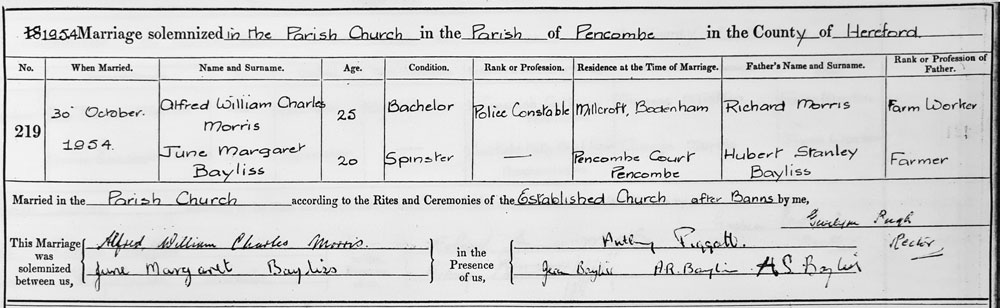 181954 Marriage solemnized in the Parish Church in the Parish of Pencombe in the County of Hereford
No. When Married. Name and Surname. Age. Condition. Rank or Profession. Residence at the Time of Marriage. Father's Name and Surname. Rank or Profession of Father.
219 30 October. 1954. Alfred William Charles Morris 25 Bachelor Police Constable Millcroft, Bodenham Richard Morris Farm Worker
June Margaret Bayliss 20 Spinster — Pencombe Court Pencombe Hubert Stanley Bayliss Farmer
Married in the Parish Church according to the Rites and Ceremonies of the Established Church after Banns by me,
Pugh
Rector
This Marriage was solemnized between us,
Alfred William Charles Morris.
June Margaret Bayliss
in the Presence of us,
Anthony Piggott.
Jean Bayliss A.R. Bayliss H S Bayliss